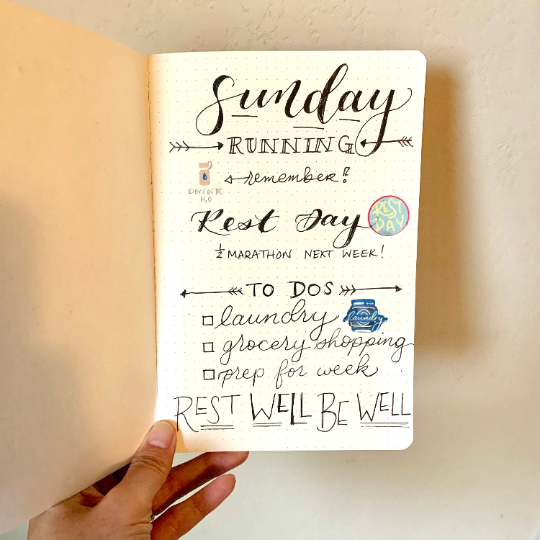 Sunday
RUNNING
remember!
DRINK
H2O
Rest Day
REST DAY
½ MARATHON NEXT WEEK!
TO DOS
laundry
laundry
grocery shopping
prep for week
REST WELL BE WELL